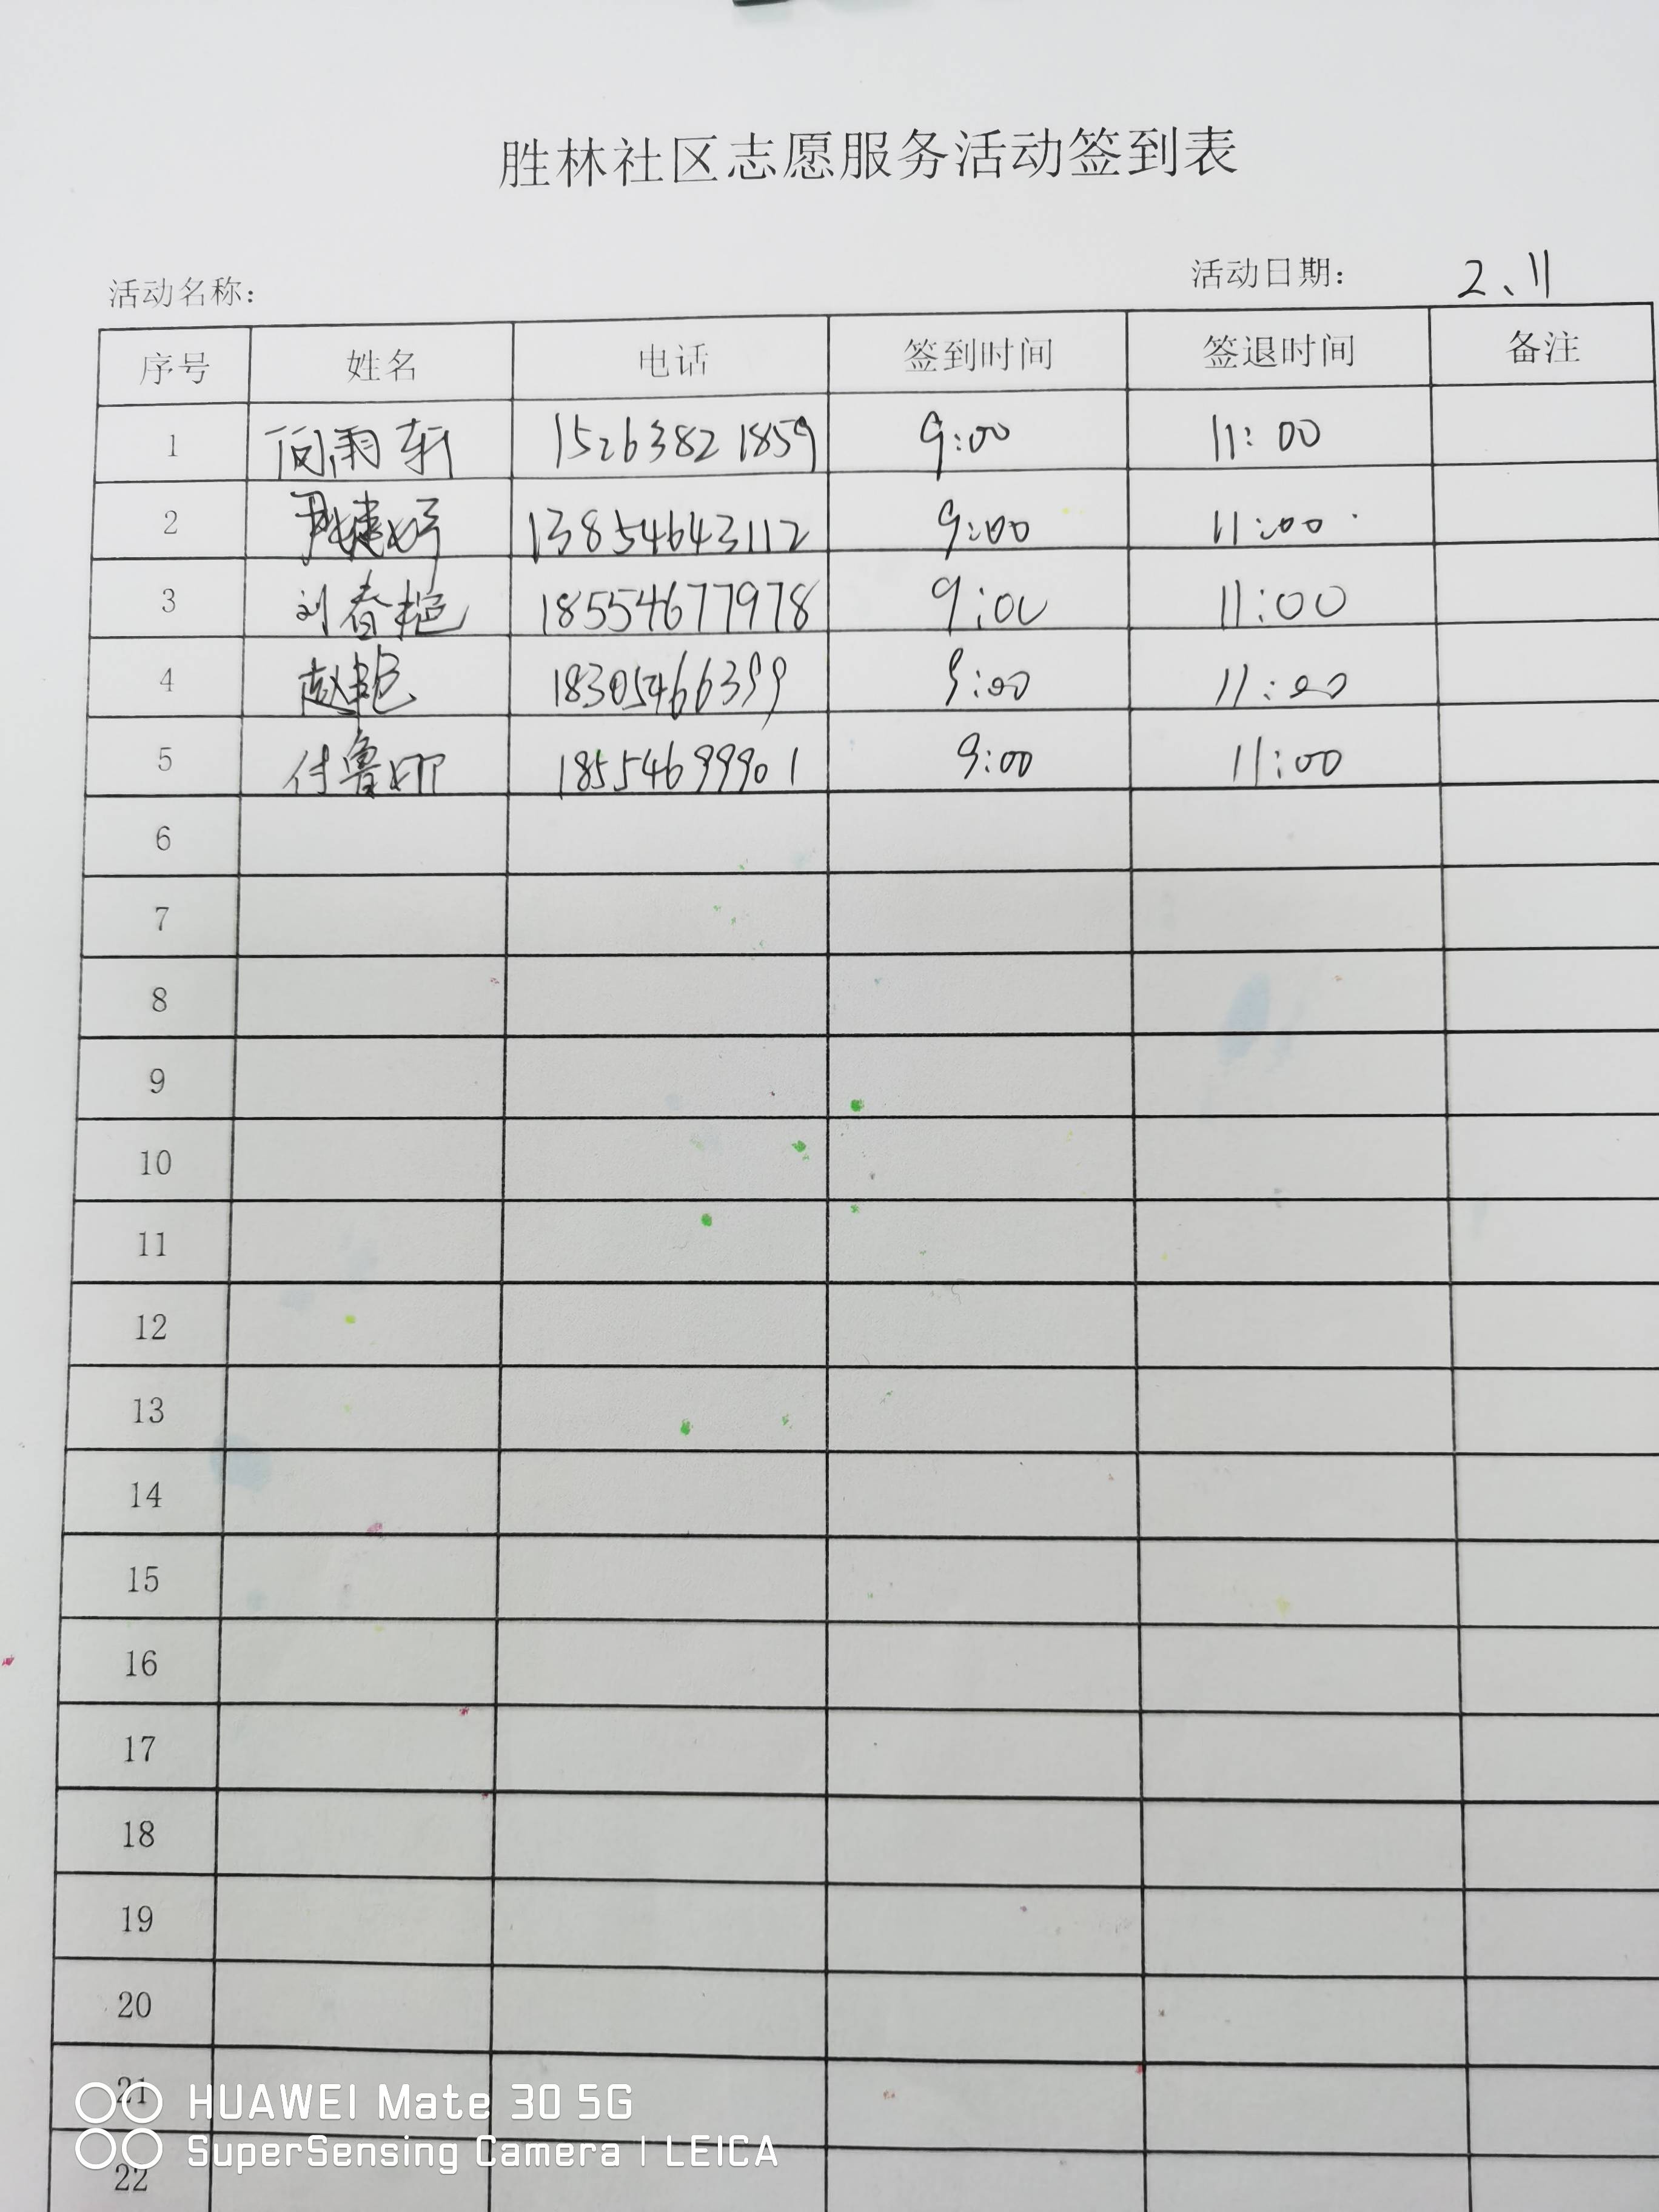 胜林社区志愿服务活动签到表
活动名称： 活动日期： 2、11
序号 姓名 电话 签到时间 签退时间 备注
1 雨轩 15263821859 9:00 11:00
2 13854643112 9:00 11:00
3 刘春艳 18554677978 9:00 11:00
4 赵艳 18305466399 9:00 11:00
5 付鲁娜 18554699901 9:00 11:00
6
7
8
9
10
11
12
13
14
15
16
17
18
19
20
21
22
HUAWEI Mate 30 5G
SuperSensing Camera | LEICA